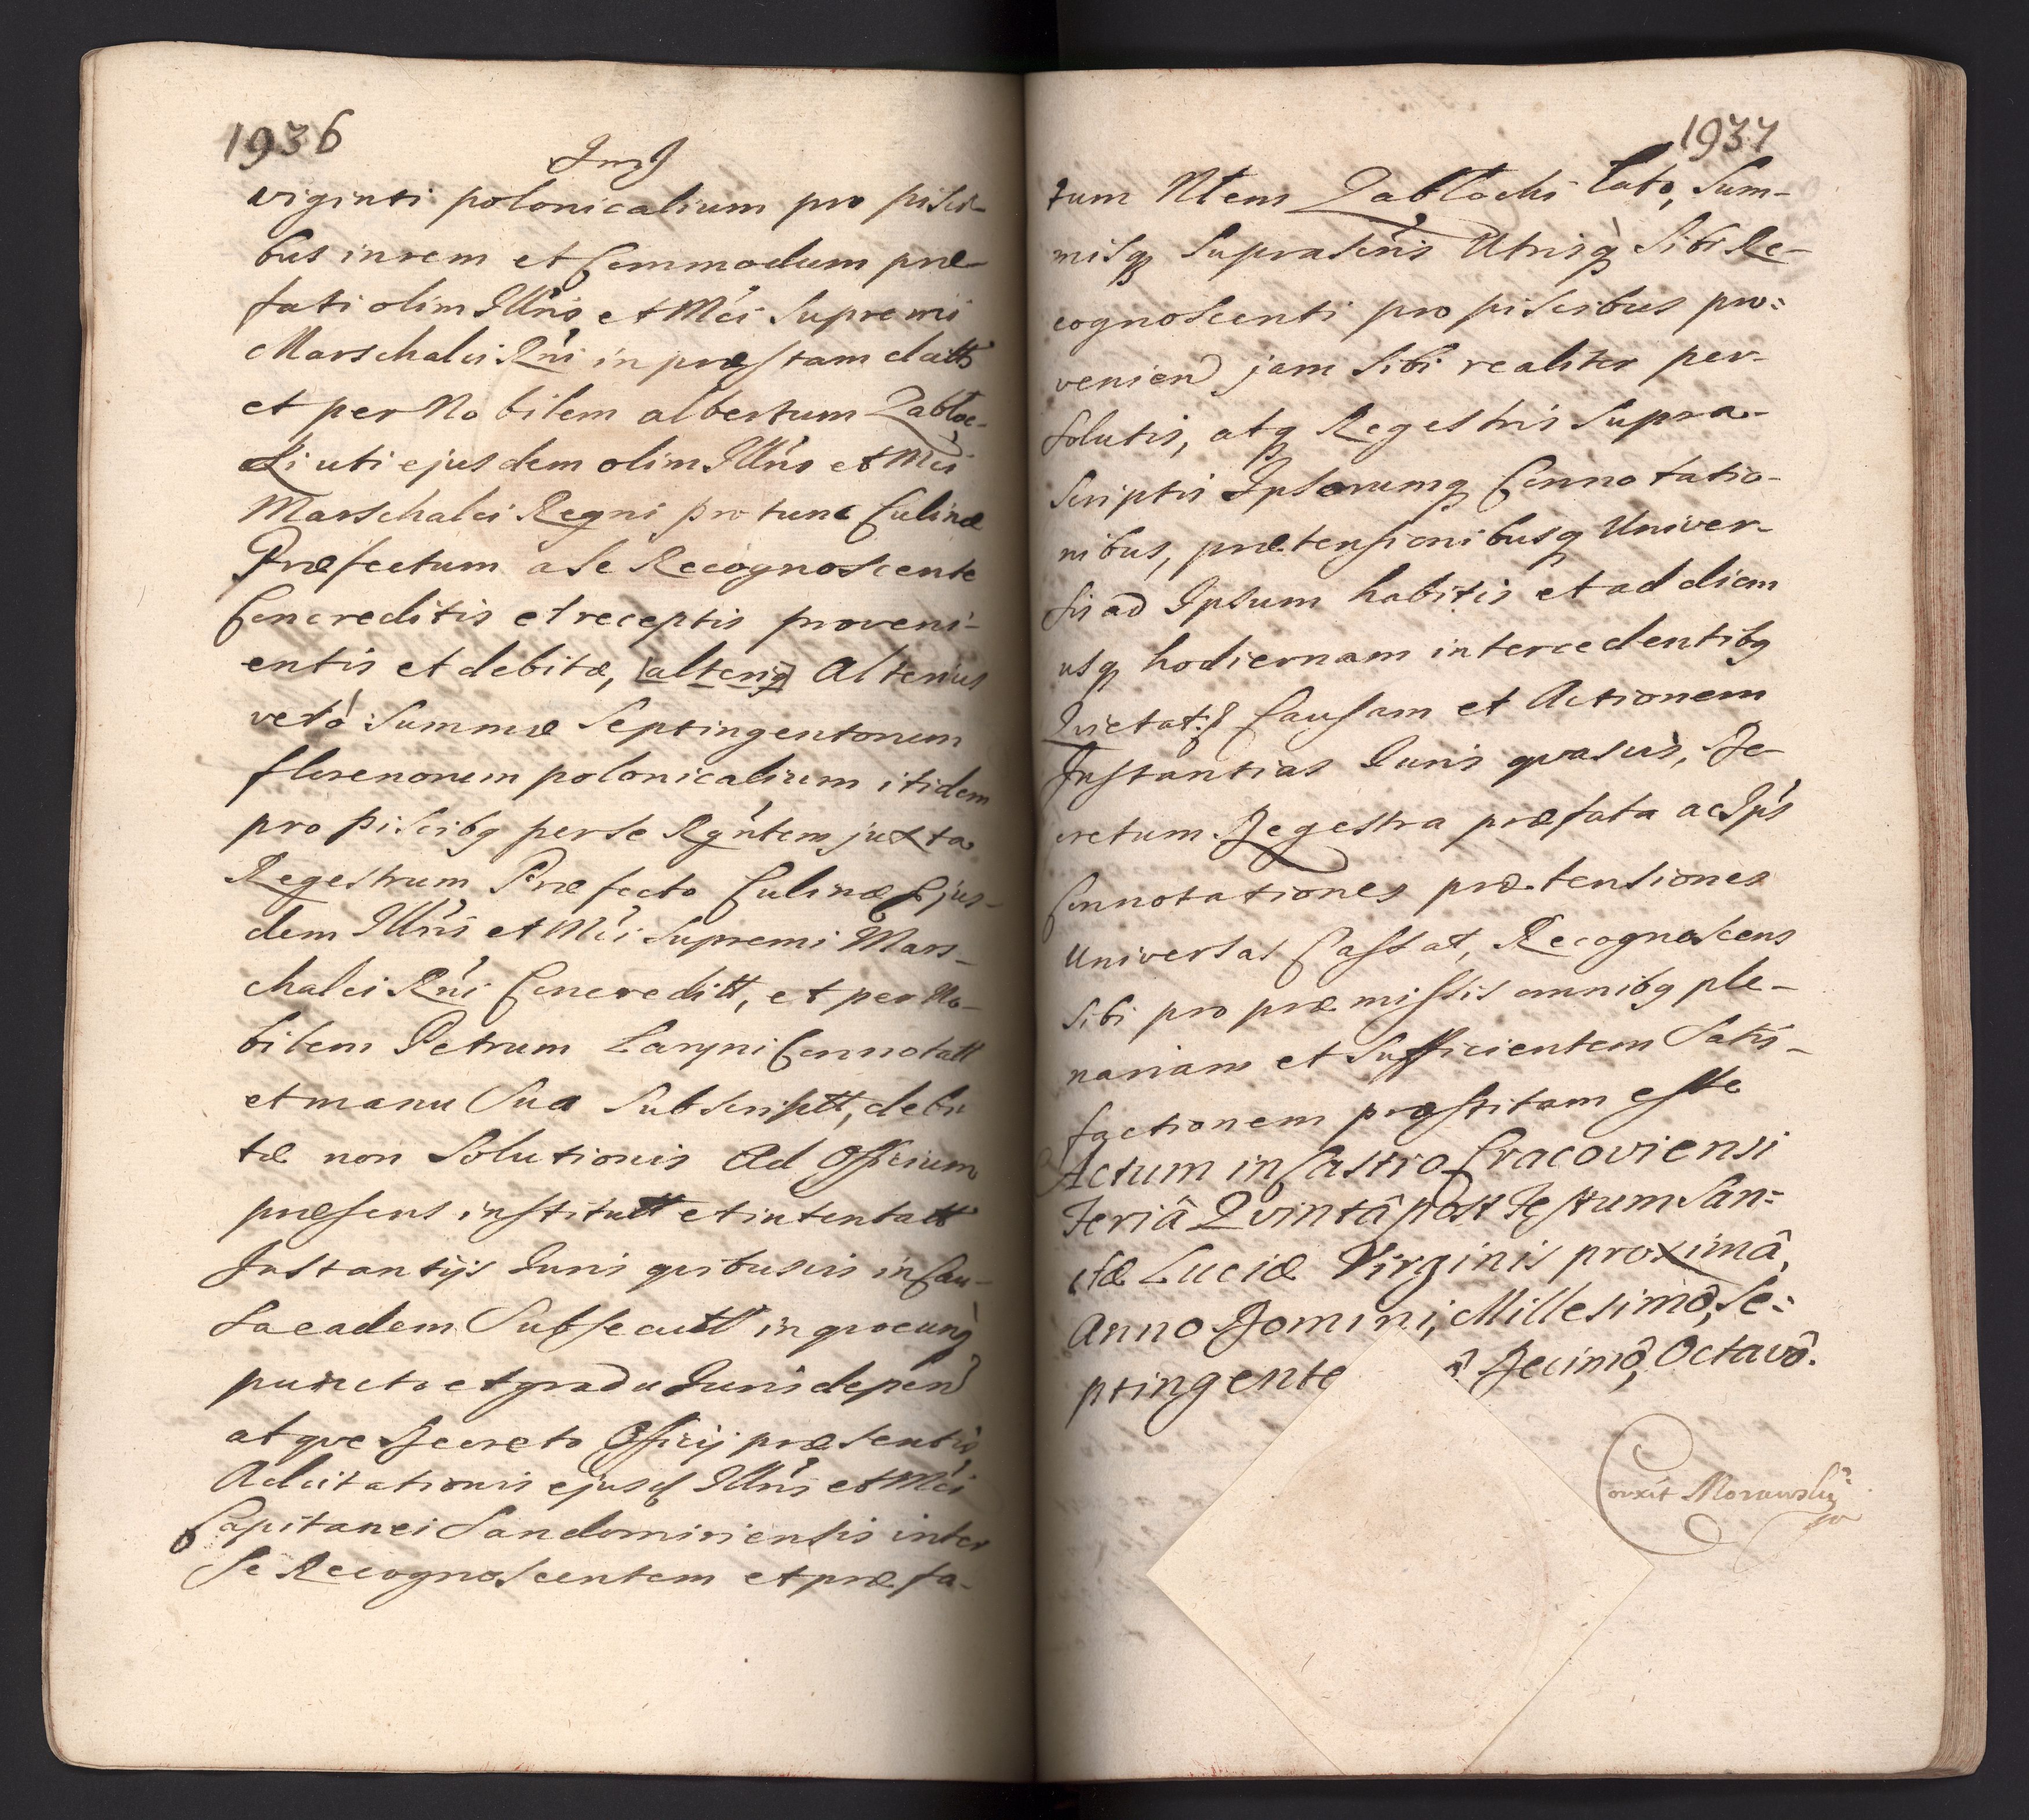 1936
viginti polonicalium pro pisci-
bus in rem et Commodum præ-
fati olim Illris et Mci Supremi
Marschalci Rni in præstam datt
et per Nobilem albertum Zabłoc-
ki uti ejusdem olim Illris et Mci
Marschalci Regni pro tunc Culinæ
Præfectum à se Recognoscente
Concreditis et receptis proveni-
entis et debitæ, alteriq Alterius
verò Summæ Septingentorum
florenorum polonicalium itidem
pro piscibq per se Rgntem juxta
Regestrum Præfecto Culinæ Ejus-
dem Illris et Mci Supremi Mars-
chalci Rni Concreditt, et per No-
bilem Petrum Laryni Connotatt
et manu Sua Subscriptt, debi
tæ non Solutionis Ad Officium
præsens institutt et intentatt
Instantijs Iuris quibusvis in Cau-
sa eadem Subsecutt in quocunq
puncto et gradu Iuris depen
atque Decreto Officij præsentis
Adcitationis ejusd Illris et Mci
Capitanei Sandomiriensis inter
Se Recognoscentem et præfa-
1937
tum Nlem Zabłocki lato, Sum-
misq Suprascris Utrisq Sibi Re-
cognoscenti pro piscibus pro=
venien jam Sibi realiter per-
solutis, atq Regestris Supra-
scriptis Ipsorumq Connotatio-
nibus, prætensionibusq Univer-
sis ad Ipsum habitis et ad diem
usq hodiernam intercedentibq
Quietat: Causam et Actionem
Instantias Iuris quasvis, De-
cretum Regestra præfata ac Ips
Connotationes prætensiones
Universas Cassat, Recognoscens
Sibi pro præmissis omnibq ple-
nariam et Sufficientem Satis-
factionem præstitam esse
Actum in Castro Cracoviensi
Feriâ Qvintâ post Festum San=
ctæ Luciæ Virginis proximâ,
Anno Domini, Millesimô, Se=
ptingente ô Decimô, Octavô.
Corxit Morawsky